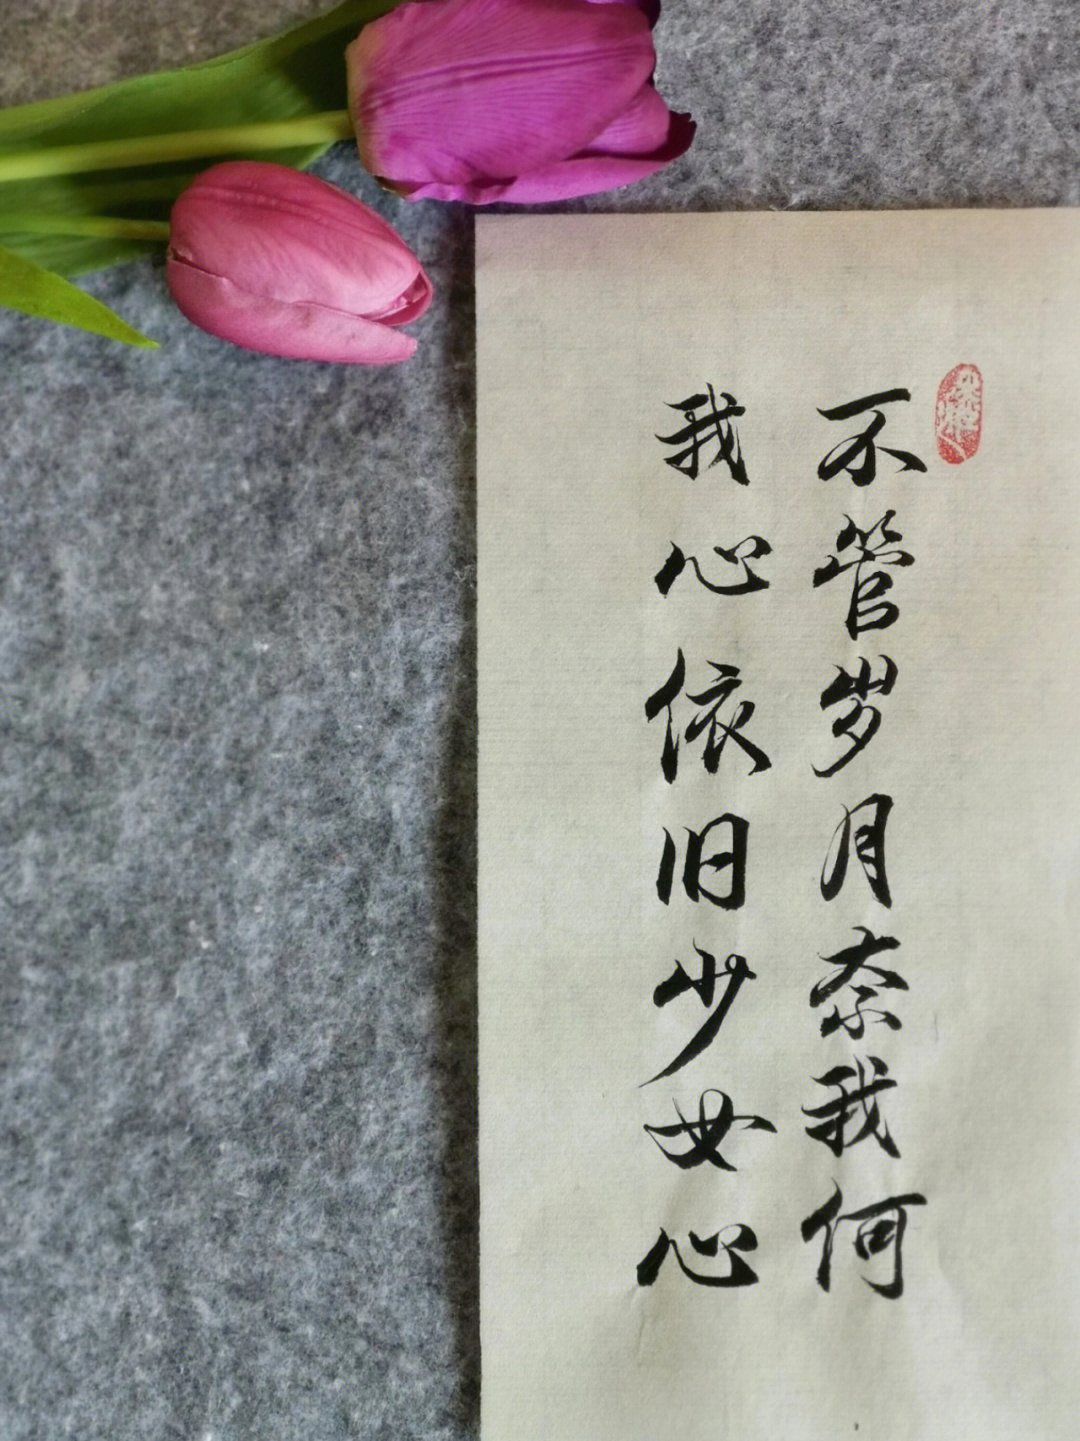 不管岁月奈我何
我心依旧少女心